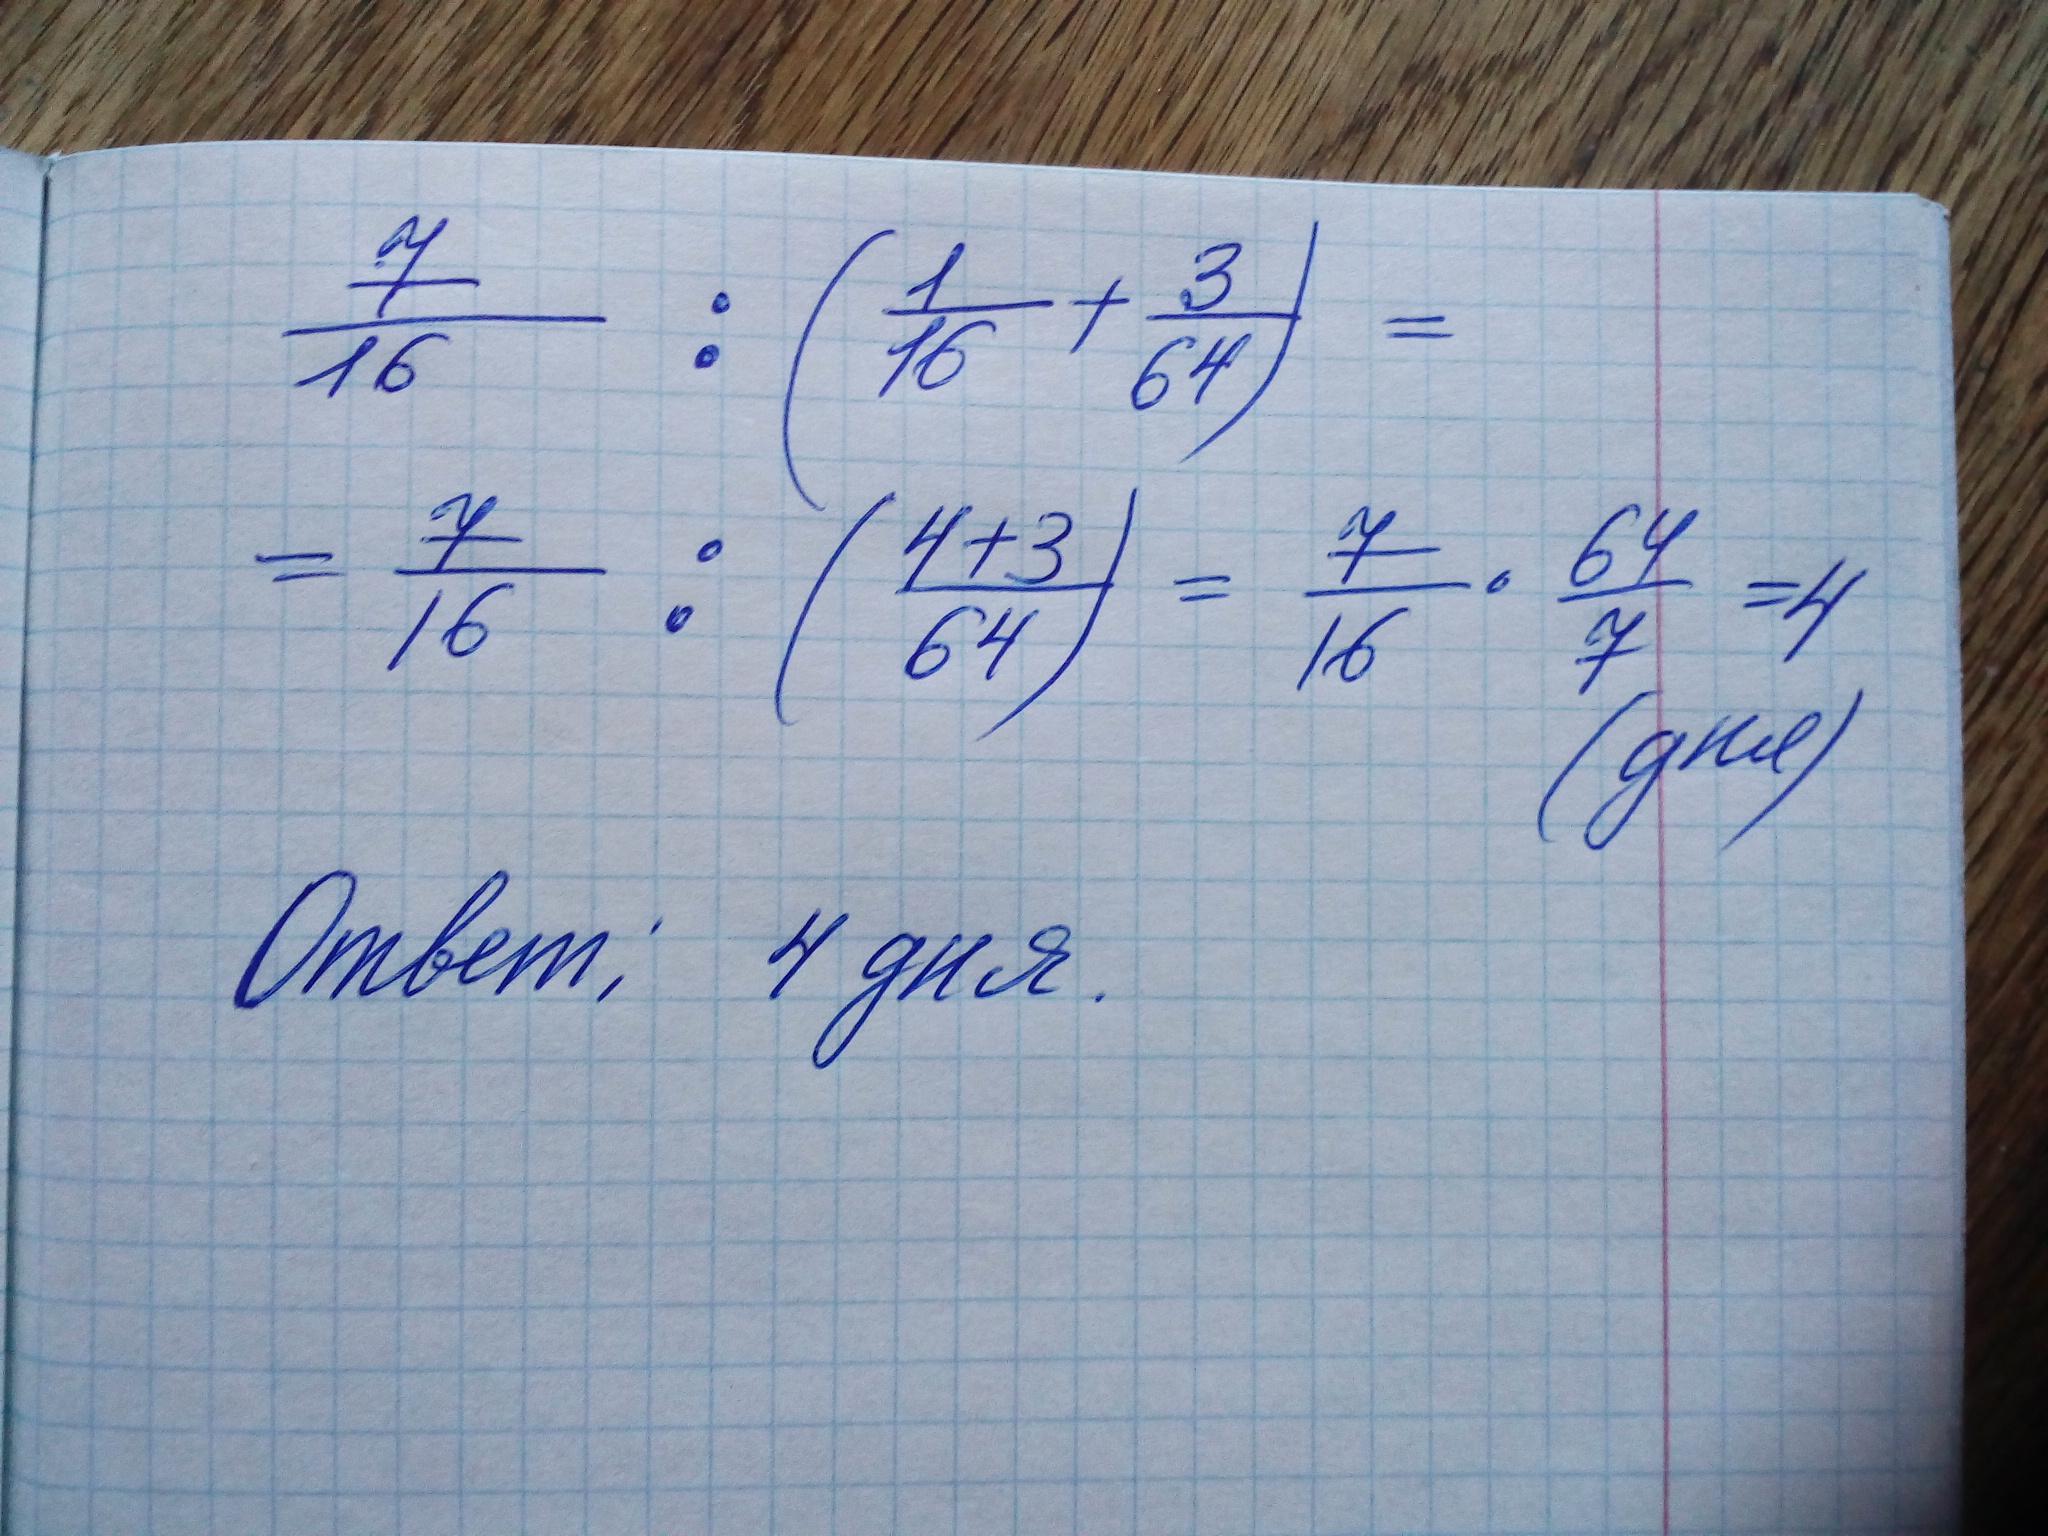 7/16 : (1/16 + 3/64) =
= 7/16 : (4+3/64) = 7/16 · 64/7 = 4
(дня)
Ответ: 4 дня.